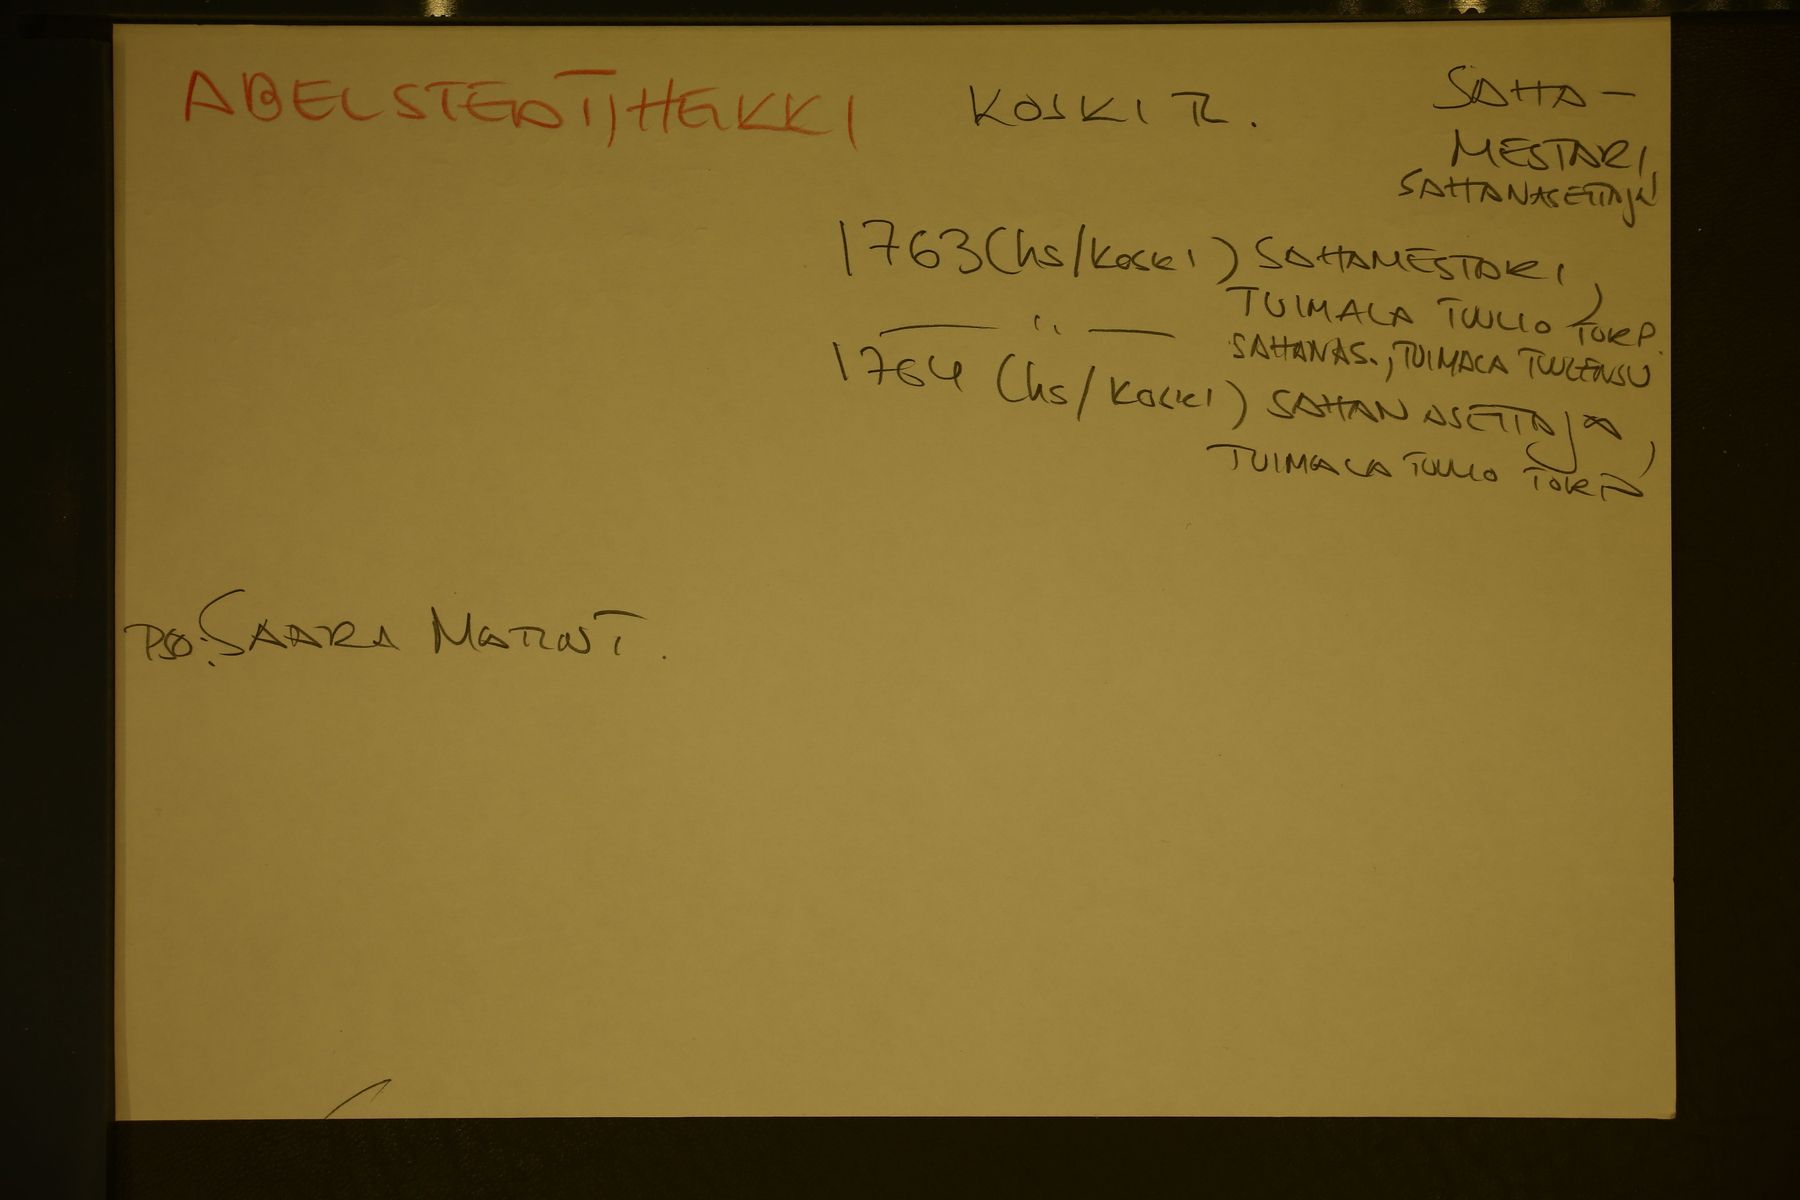 ABELSTEDT, HEIKKI KOSKI TL. SAHA-
MESTARI,
SAHANASETTAJA
1763 (hs/Koski) SAHAMESTARI,
TUIMALA TUULIO TORP.
— '' — SAHANAS., TUIMALA TUULENSU
1764 (hs/Koski) SAHANASETTAJA,
TUIMALA TUULIO TORP
PSO: SAARA MATINT.